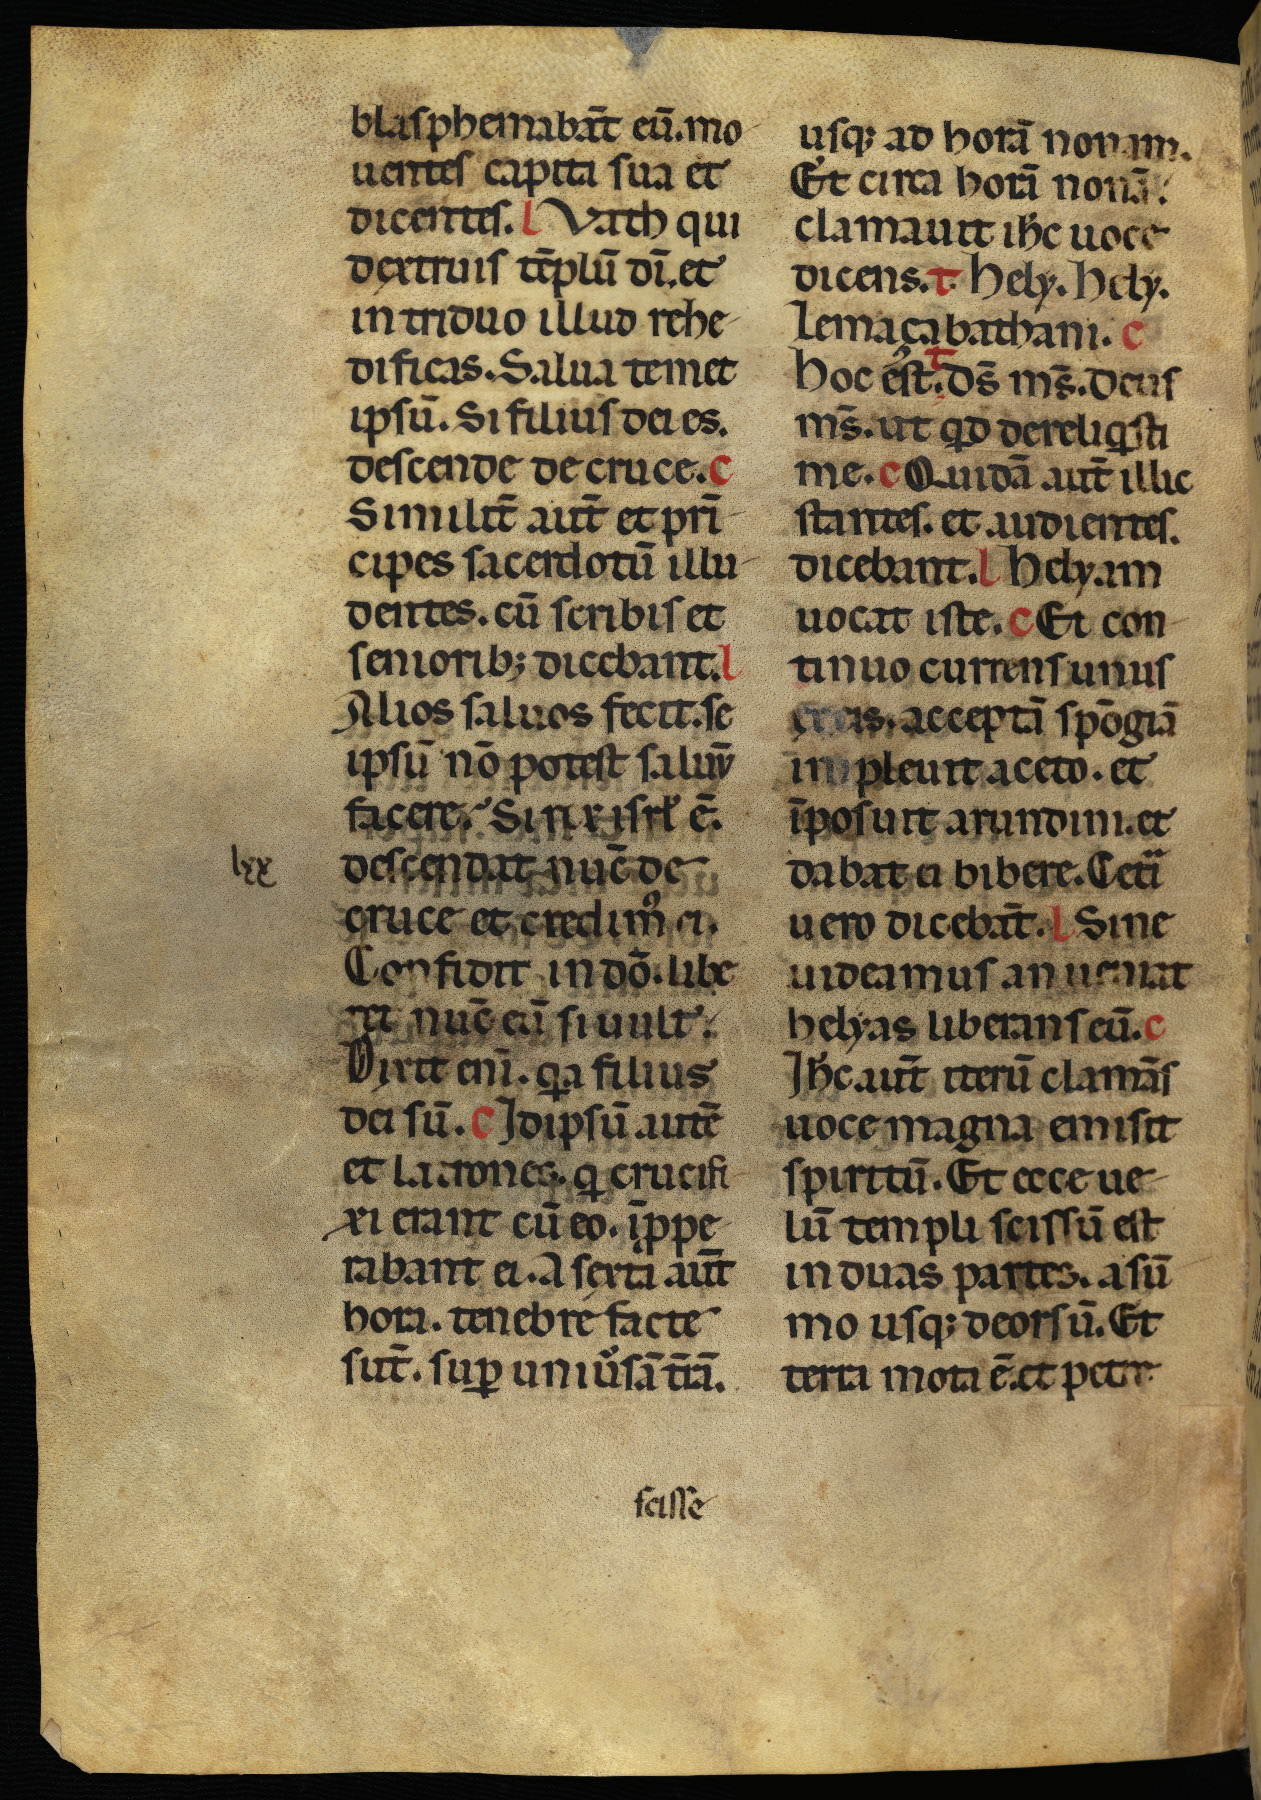 blasphemabāt eū. mo
uentes capita sua et
dicentes. l Vath qui
dextruis tēplū dī. et
in triduo illud rehe
dificas. Salua temet
ipsū. Si filius dei es.
descende de cruce. c
Similit̄ aut̄ et prī
cipes sacerdotū illu
dentes. cū scribis et
seniorib; dicebant. l
Alios saluos fecit. se
ipsū nō potest saluū
facere. Si rex isrł ē.
lxx
descendat nūc de
cruce et credim᾿ ei.
Confidit in dō. libe
ret nūc eū si uult.
Dixit eni. qa filius
dei sū. c Idipsū autē
et latrones. q crucifi
xi erant cū eo. īppe
rabant ei. A sexta aut̄
hora. tenebre facte
sūt. sup uniūsā t̄rā.
usq; ad horā nonam.
Et circa horā nonā.
clamauit ih̄c uoce
dicens. t hely. hely.
lemaçabathani. c
hoc est. t ds̄ ms̄. Deus
ms̄. ut qd dereliqsti
me. c Quidā aut̄ illic
stantes. et audientes.
dicebant. l helyam
uocat iste. c Et con
tinuo currens unus
ex eis. acceptā spōgiā
impleuit aceto. et
īposuit arundini. et
dabat ei bibere. Cetī
uero dicebāt. l Sine
uideamus an ueniat
helyas liberans eū. c
Ih̄c aut̄ iterū clamās
uoce magna emisit
spiritū. Et ecce ue
lū templi scissū est
in duas partes. a sū
mo usq; deorsū. Et
terra mota ē. et petre
scisse